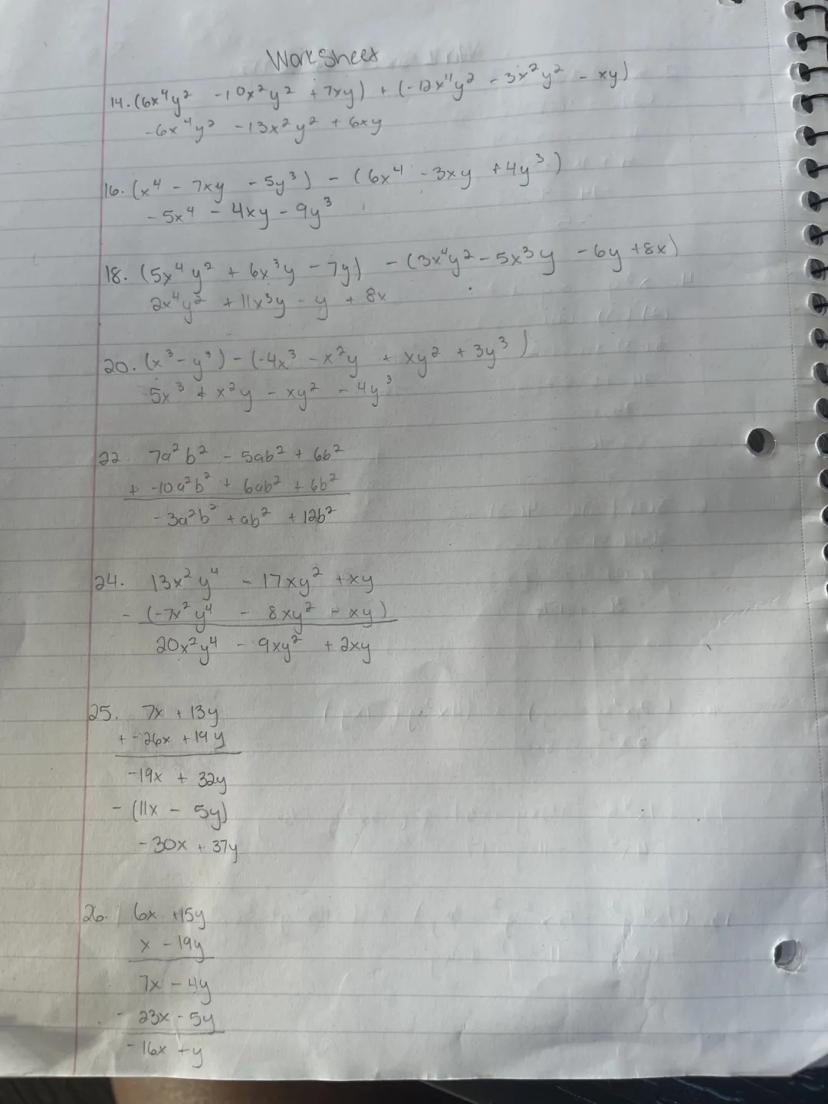 Worksheet
14. (6x⁴y² - 10x²y² + 7xy) + (-12x⁴y² - 3x²y² - xy)
-6x⁴y² - 13x²y² + 6xy
16. (x⁴ - 7xy - 5y³) - (6x⁴ - 3xy + 4y³)
-5x⁴ - 4xy - 9y³
18. (5x⁴y² + 6x³y - 7y) - (3x⁴y² - 5x³y - 6y + 8x)
2x⁴y² + 11x³y - y + 8x
20. (x³ - y³) - (-4x³ - x²y + xy² + 3y³)
5x³ + x²y - xy² - 4y³
22. 7a²b² - 5ab² + 6b²
+ -10a²b² + 6ab² + 6b²
-3a²b² + ab² + 12b²
24. 13x²y⁴ - 17xy² + xy
- (-7x²y⁴ - 8xy² - xy)
20x²y⁴ - 9xy² + 2xy
25. 7x + 13y
+ -26x + 19y
-19x + 32y
- (11x - 5y)
-30x + 37y
26. 6x + 15y
x - 19y
7x - 4y
- 23x - 5y
-16x + y